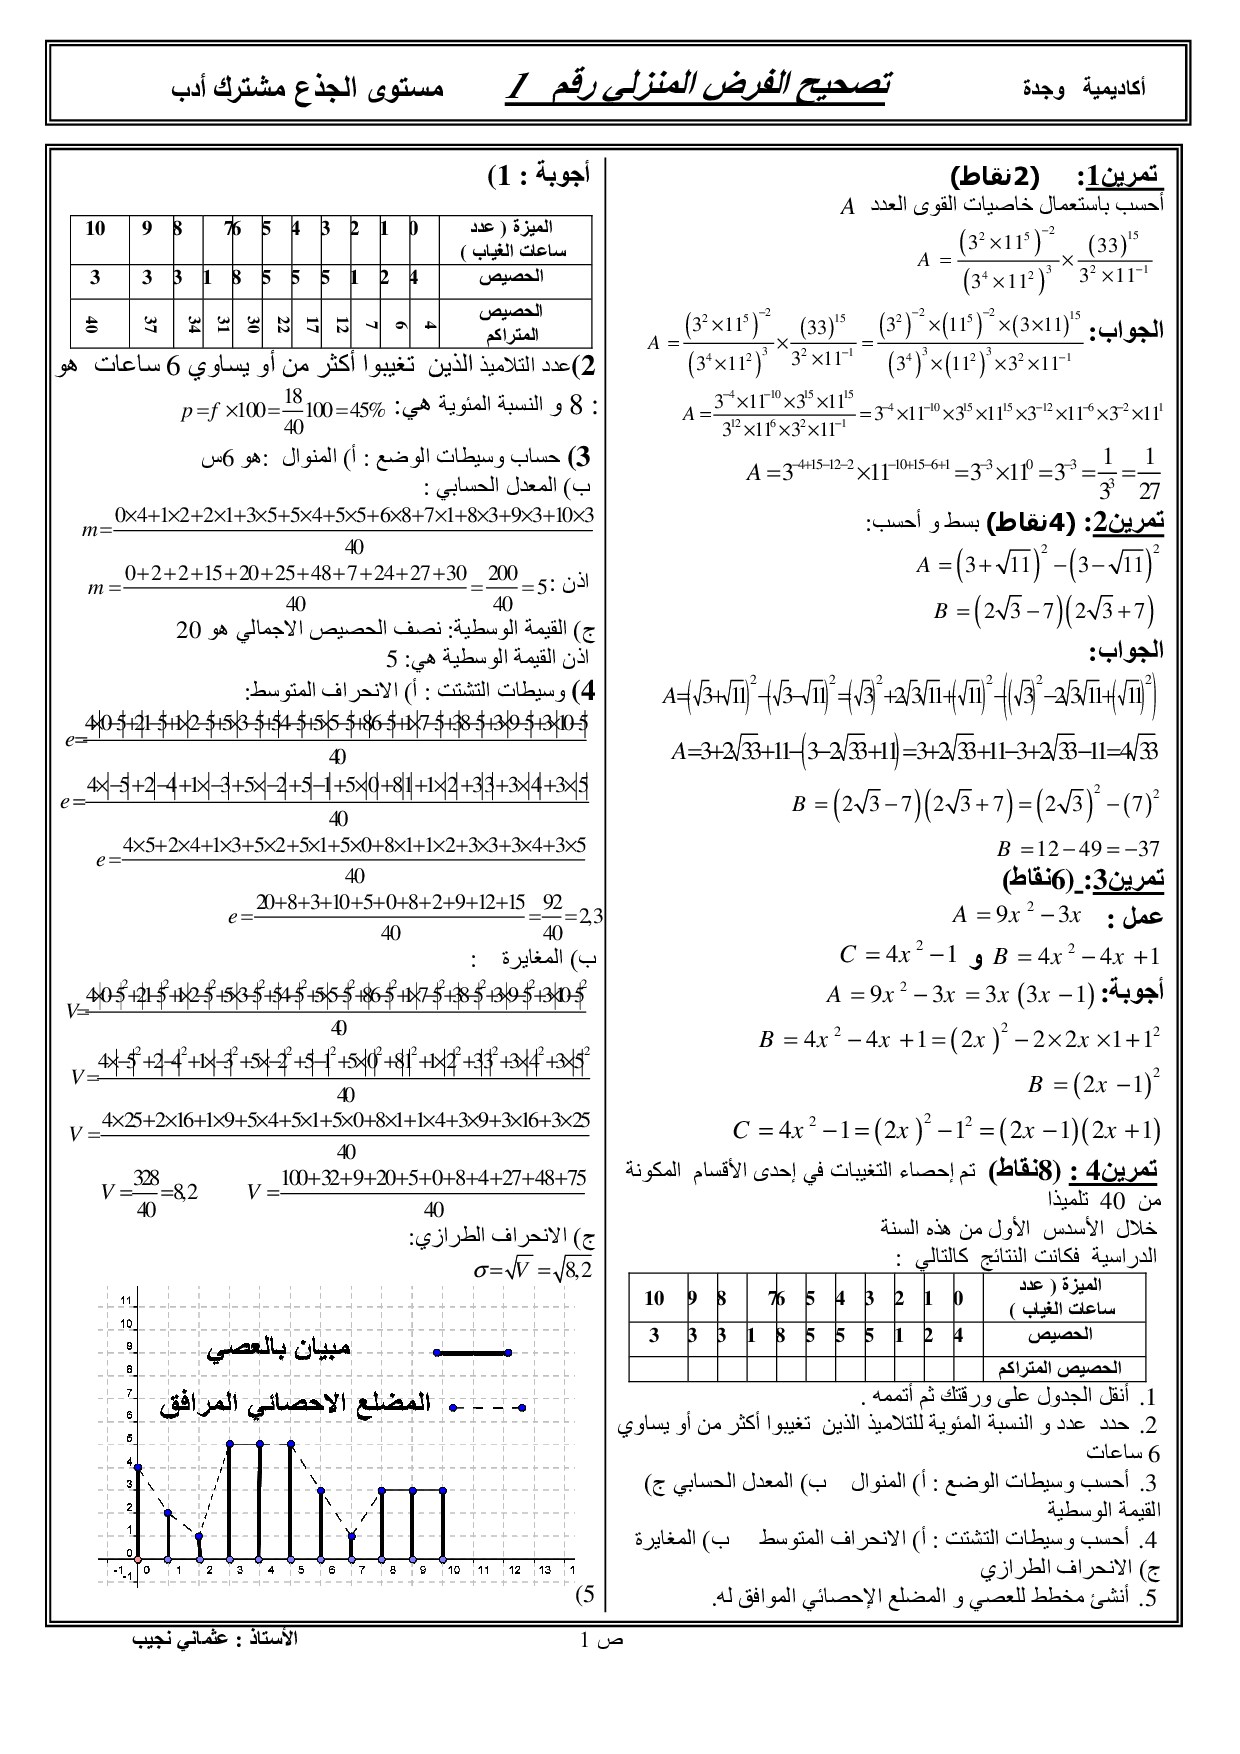 أكاديمية وجدة
تصحيح الفرض المنزلي رقم 1
مستوى الجذع مشترك أدب
تمرين1: (2نقاط)
أحسب باستعمال خاصيات القوى العدد A
A = (3²×11⁵)⁻² / (3⁴×11²)³ × (33)¹⁵ / (3²×11⁻¹)
الجواب: A = (3²×11⁵)⁻² / (3⁴×11²)³ × (33)¹⁵ / (3²×11⁻¹) = (3²)⁻²×(11⁵)⁻²×(3×11)¹⁵ / (3⁴)³×(11²)³×3²×11⁻¹
A = 3⁻⁴×11⁻¹⁰×3¹⁵×11¹⁵ / 3¹²×11⁶×3²×11⁻¹ = 3⁻⁴×11⁻¹⁰×3¹⁵×11¹⁵×3⁻¹²×11⁻⁶×3⁻²×11¹
A = 3⁻⁴⁺¹⁵⁻¹²⁻²×11⁻¹⁰⁺¹⁵⁻⁶⁺¹ = 3⁻³×11⁰ = 3⁻³ = 1/3³ = 1/27
تمرين2: (4نقاط) بسط و أحسب:
A = (3+√11)² − (3−√11)²
B = (2√3−7)(2√3+7)
الجواب:
A=(√3+√11)²−(√3−√11)²=(√3)²+2√3√11+(√11)²−((√3)²−2√3√11+(√11)²)
A=3+2√33+11−(3−2√33+11)=3+2√33+11−3+2√33−11=4√33
B = (2√3−7)(2√3+7) = (2√3)² − (7)²
B = 12 − 49 = −37
تمرين3: (6نقاط)
عمل : A = 9x² − 3x
B = 4x² − 4x + 1 و C = 4x² − 1
أجوبة: A = 9x² − 3x = 3x(3x − 1)
B = 4x² − 4x + 1 = (2x)² − 2×2x×1 + 1²
B = (2x − 1)²
C = 4x² − 1 = (2x)² − 1² = (2x − 1)(2x + 1)
تمرين4 : (8نقاط) تم إحصاء التغيبات في إحدى الأقسام المكونة
من 40 تلميذا
خلال الأسدس الأول من هذه السنة
الدراسية فكانت النتائج كالتالي :
الميزة ( عدد ساعات الغياب ) 0 1 2 3 4 5 6 7 8 9 10
الحصيص 4 2 1 5 5 5 8 1 3 3 3
الحصيص المتراكم
1. أنقل الجدول على ورقتك ثم أتممه .
2. حدد عدد و النسبة المئوية للتلاميذ الذين تغيبوا أكثر من أو يساوي
6 ساعات
3. أحسب وسيطات الوضع : أ) المنوال ب) المعدل الحسابي ج)
القيمة الوسطية
4. أحسب وسيطات التشتت : أ) الانحراف المتوسط ب) المغايرة
ج) الانحراف الطرازي
5. أنشئ مخطط للعصي و المضلع الإحصائي الموافق له.
أجوبة : 1)
الميزة ( عدد ساعات الغياب ) 0 1 2 3 4 5 6 7 8 9 10
الحصيص 4 2 1 5 5 5 8 1 3 3 3
الحصيص المتراكم 4 6 7 12 17 22 30 31 34 37 40
2)عدد التلاميذ الذين تغيبوا أكثر من أو يساوي 6 ساعات هو
: 8 و النسبة المئوية هي: p = f ×100 = 18/40 100 = 45%
3) حساب وسيطات الوضع : أ) المنوال :هو 6س
ب) المعدل الحسابي :
m = 0×4+1×2+2×1+3×5+5×4+5×5+6×8+7×1+8×3+9×3+10×3 / 40
اذن : m = 0+2+2+15+20+25+48+7+24+27+30 / 40 = 200/40 = 5
ج) القيمة الوسطية: نصف الحصيص الاجمالي هو 20
اذن القيمة الوسطية هي: 5
4) وسيطات التشتت : أ) الانحراف المتوسط:
e = 4×|0−5|+2|1−5|+1×|2−5|+5×|3−5|+5|4−5|+5×|5−5|+8|6−5|+1×|7−5|+3|8−5|+3×|9−5|+3×|10−5| / 40
e = 4×|−5|+2|−4|+1×|−3|+5×|−2|+5|−1|+5×|0|+8|1|+1×|2|+3|3|+3×|4|+3×|5| / 40
e = 4×5+2×4+1×3+5×2+5×1+5×0+8×1+1×2+3×3+3×4+3×5 / 40
e = 20+8+3+10+5+0+8+2+9+12+15 / 40 = 92/40 = 2,3
ب) المغايرة :
V = 4×|0−5|²+2|1−5|²+1×|2−5|²+5×|3−5|²+5|4−5|²+5×|5−5|²+8|6−5|²+1×|7−5|²+3|8−5|²+3×|9−5|²+3×|10−5|² / 40
V = 4×|−5|²+2|−4|²+1×|−3|²+5×|−2|²+5|−1|²+5×|0|²+8|1|²+1×|2|²+3|3|²+3×|4|²+3×|5|² / 40
V = 4×25+2×16+1×9+5×4+5×1+5×0+8×1+1×4+3×9+3×16+3×25 / 40
V = 100+32+9+20+5+0+8+4+27+48+75 / 40 V = 328/40 = 8,2
ج) الانحراف الطرازي:
σ = √V = √8,2
مبيان بالعصي
المضلع الاحصائي المرافق
11
10
9
8
7
6
5
4
3
2
1
0
-1
-1 0 1 2 3 4 5 6 7 8 9 10 11 12 13 1
5)
ص 1
الأستاذ : عثماني نجيب